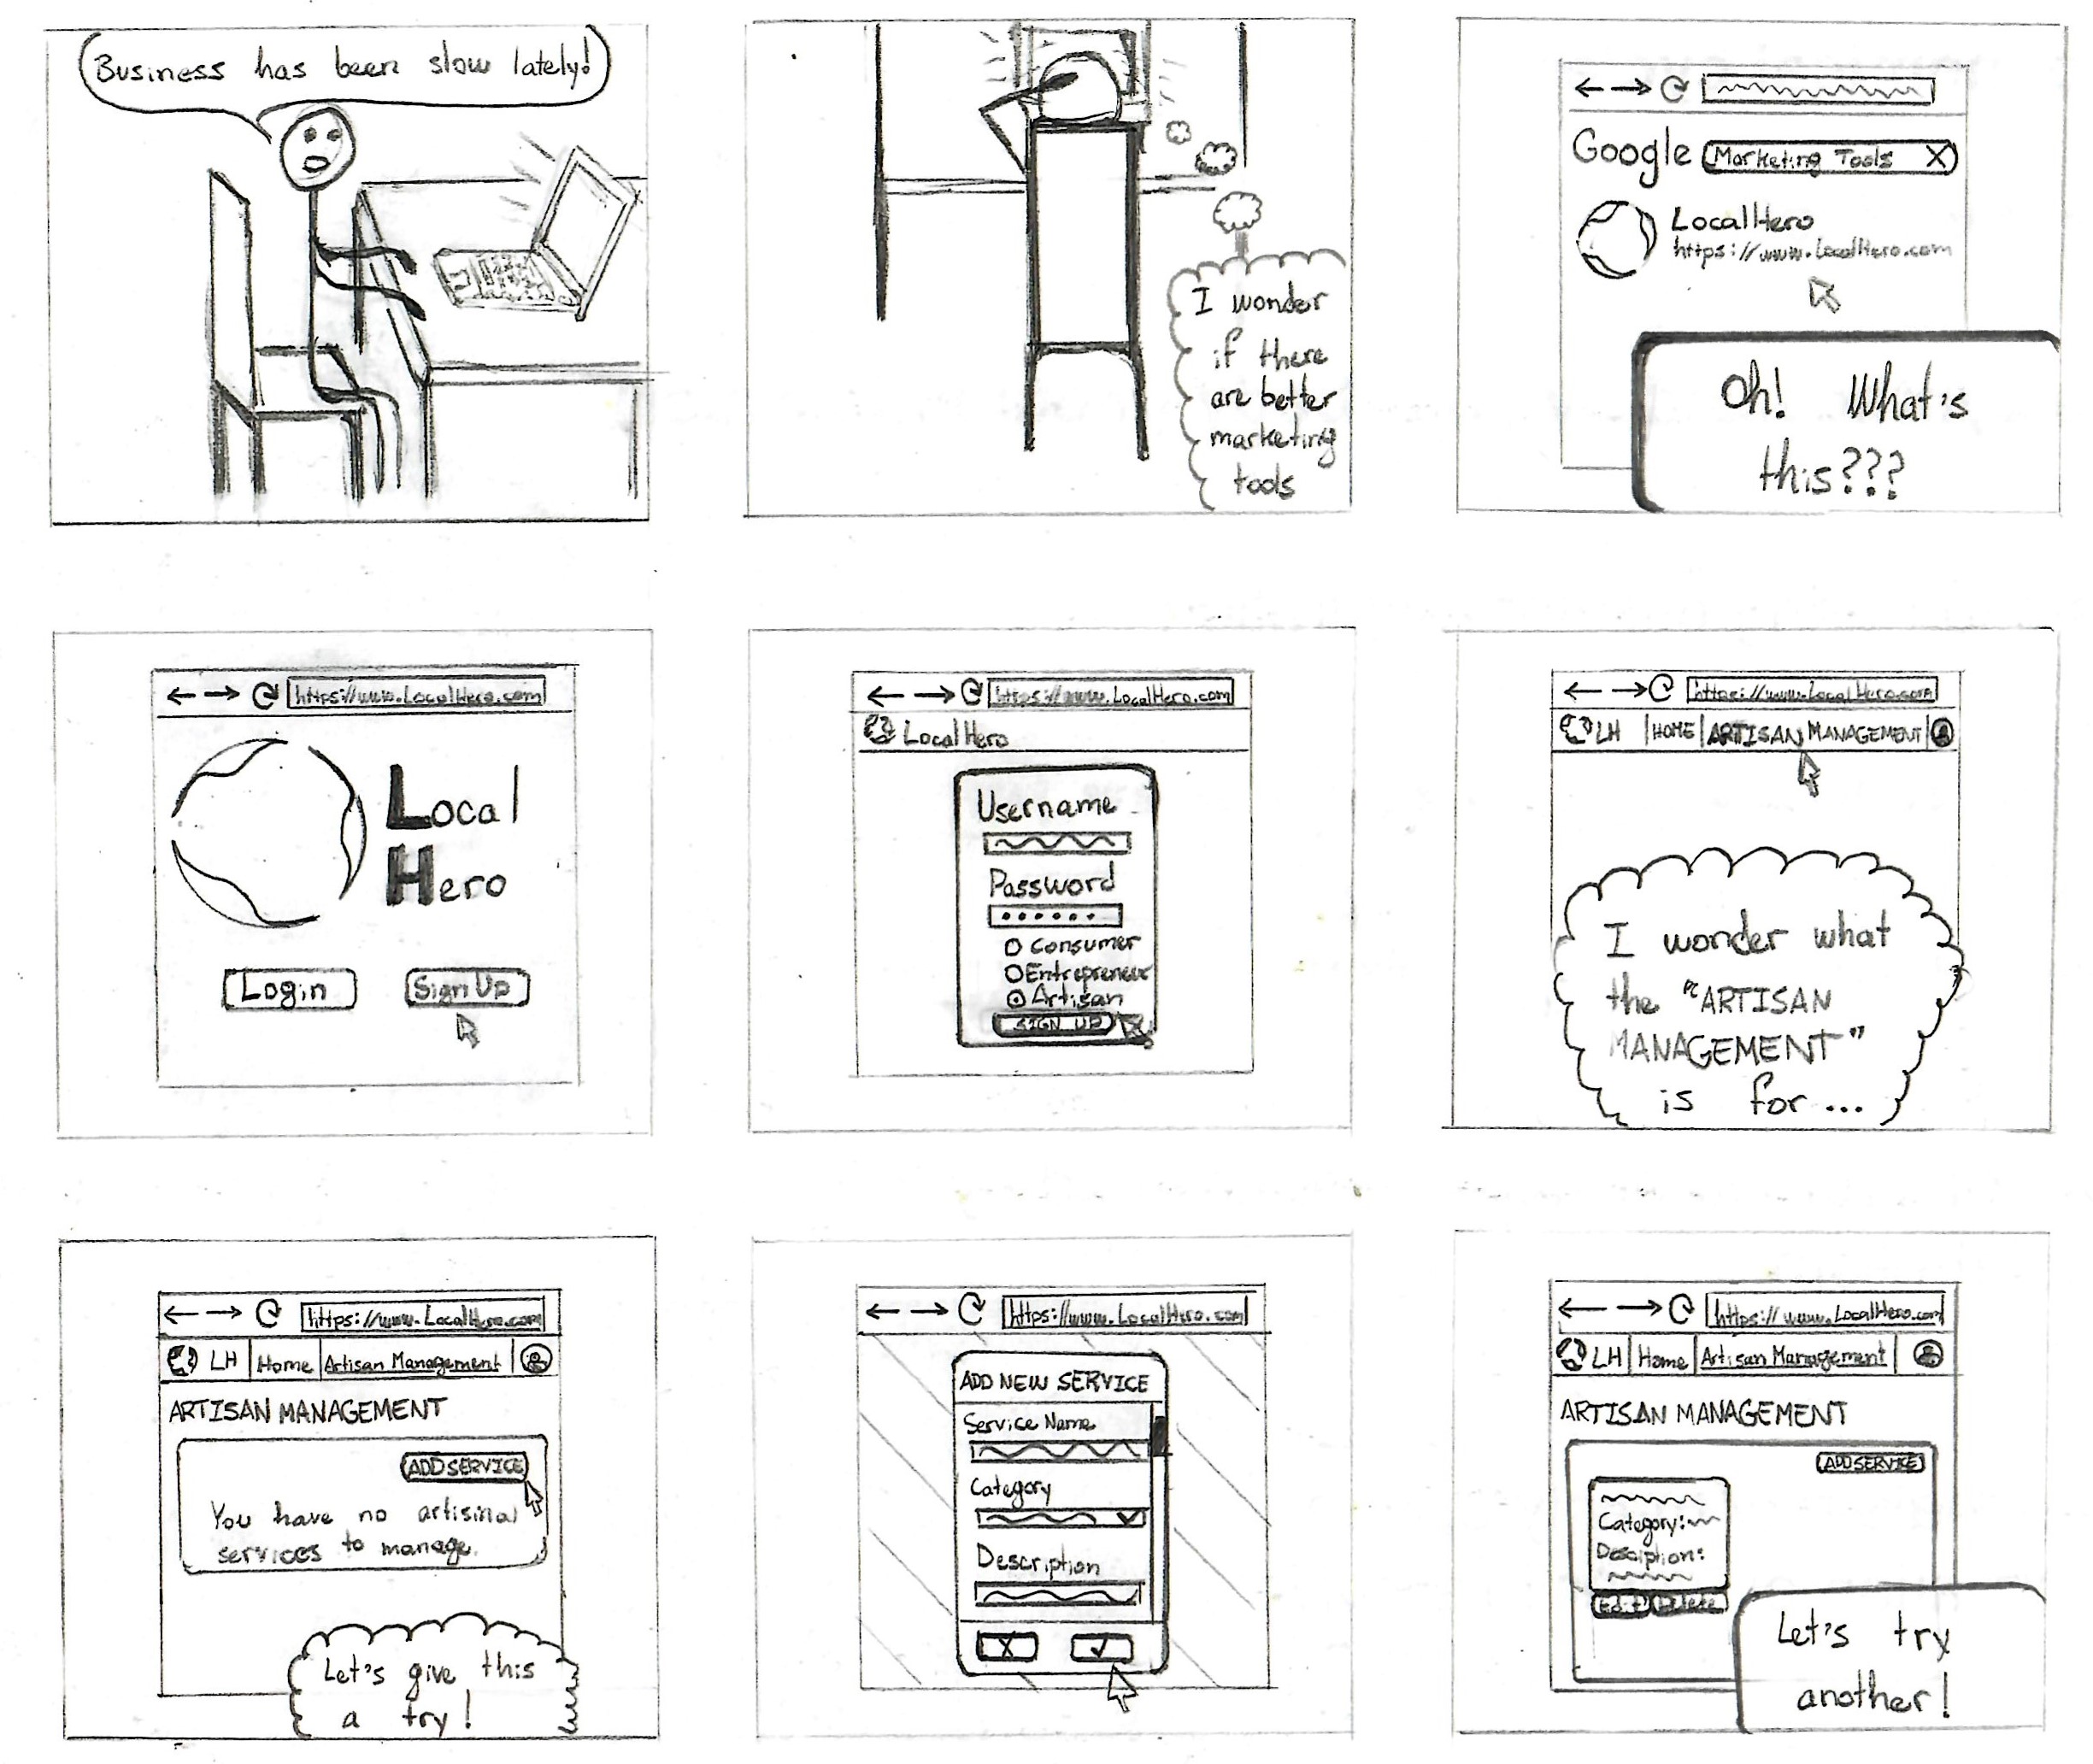 Business has been slow lately!
I wonder
if there
are better
marketing
tools
Google Marketing Tools X
LocalHero
https://www.LocalHero.com
Oh! What's
this???
https://www.LocalHero.com
Local
Hero
Login Sign Up
https://www.LocalHero.com
LocalHero
Username
Password
Consumer
Entrepreneur
Artisan
SIGN UP
https://www.LocalHero.com
LH HOME ARTISAN MANAGEMENT
I wonder what
the "ARTISAN
MANAGEMENT"
is for...
https://www.LocalHero.com
LH Home Artisan Management
ARTISAN MANAGEMENT
ADD SERVICE
You have no artisinal
services to manage.
Let's give this
a try!
https://www.LocalHero.com
ADD NEW SERVICE
Service Name
Category
Description
X
https://www.LocalHero.com
LH Home Artisan Management
ARTISAN MANAGEMENT
ADD SERVICE
Category:
Desciption:
Edit Delete
Let's try
another!